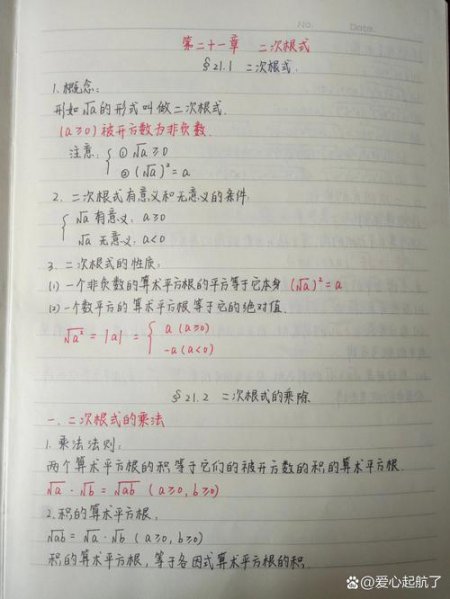 No. Date.
第二十一章 二次根式
§21.1 二次根式.
1. 概念:
形如√a的形式叫做二次根式.
(a≥0) 被开方数为非负数.
注意: { ① √a≥0
② (√a)² = a
2. 二次根式有意义和无意义的条件:
{ √a 有意义: a≥0
√a 无意义: a<0
3. 二次根式的性质:
(1) 一个非负数的算术平方根的平方等于它本身 (√a)² = a
(2) 一个数平方的算术平方根等于它的绝对值.
√a² = |a| = { a (a≥0)
-a (a<0)
§21.2 二次根式的乘除
一. 二次根式的乘法
1. 乘法法则:
两个算术平方根的积等于它们的被开方数的积的算术平方根.
√a · √b = √ab (a≥0, b≥0)
2. 积的算术平方根.
√ab = √a · √b (a≥0, b≥0)
积的算术平方根, 等于各因式算术平方根的积.
@爱心起航了